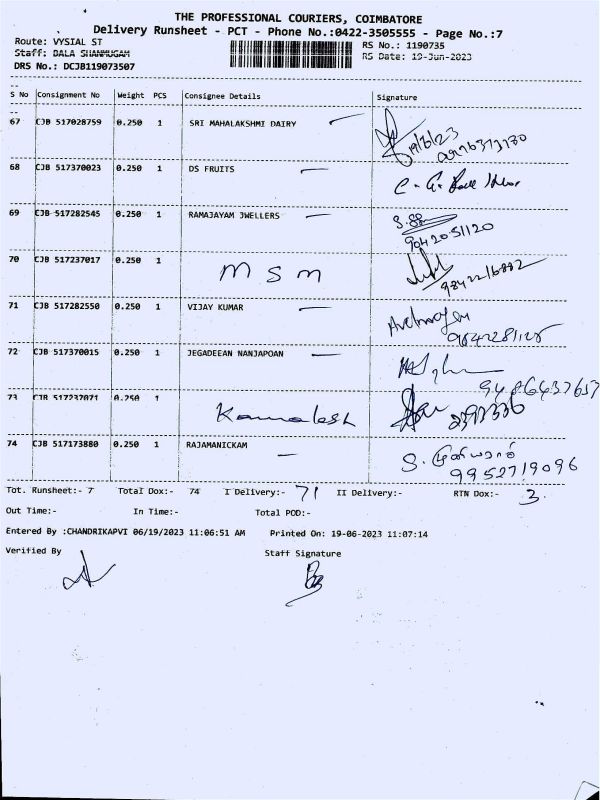 THE PROFESSIONAL COURIERS, COIMBATORE
Delivery Runsheet - PCT - Phone No.:0422-3505555 - Page No.:7
Route: VYSIAL ST
RS No.: 1190735
Staff: DALA SHANMUGAM
RS Date: 19-Jun-2023
DRS No.: DCJB119073507
S No Consignment No Weight PCS Consignee Details Signature
67 CJB 517028759 0.250 1 SRI MAHALAKSHMI DAIRY 19/6/23
68 CJB 517370023 0.250 1 DS FRUITS
69 CJB 517282545 0.250 1 RAMAJAYAM JWELLERS
9042051120
70 CJB 517237017 0.250 1 MSM
9842216882
71 CJB 517282550 0.250 1 VIJAY KUMAR
72 CJB 517370015 0.250 1 JEGADEEAN NANJAPOAN
9486437657
73 CJB 517237071 0.250 1 Kamalesh
74 CJB 517173880 0.250 1 RAJAMANICKAM
9952719096
Tot. Runsheet:- 7 Total Dox:- 74 I Delivery:- 71 II Delivery:- RTN Dox:- 3.
Out Time:- In Time:- Total POD:-
Entered By :CHANDRIKAPVI 06/19/2023 11:06:51 AM Printed On: 19-06-2023 11:07:14
Verified By Staff Signature